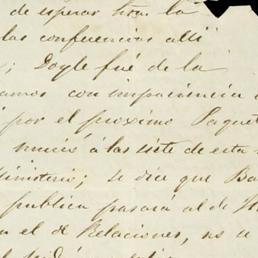 de esperar hora la
las conferencias alli
; Doyle fué de la
amos con impaciencia
por el proximo Paquet
nució á las siete de esta
Ministerio; se dice que Ba
publica pasará al de
a el de Relaciones, no se